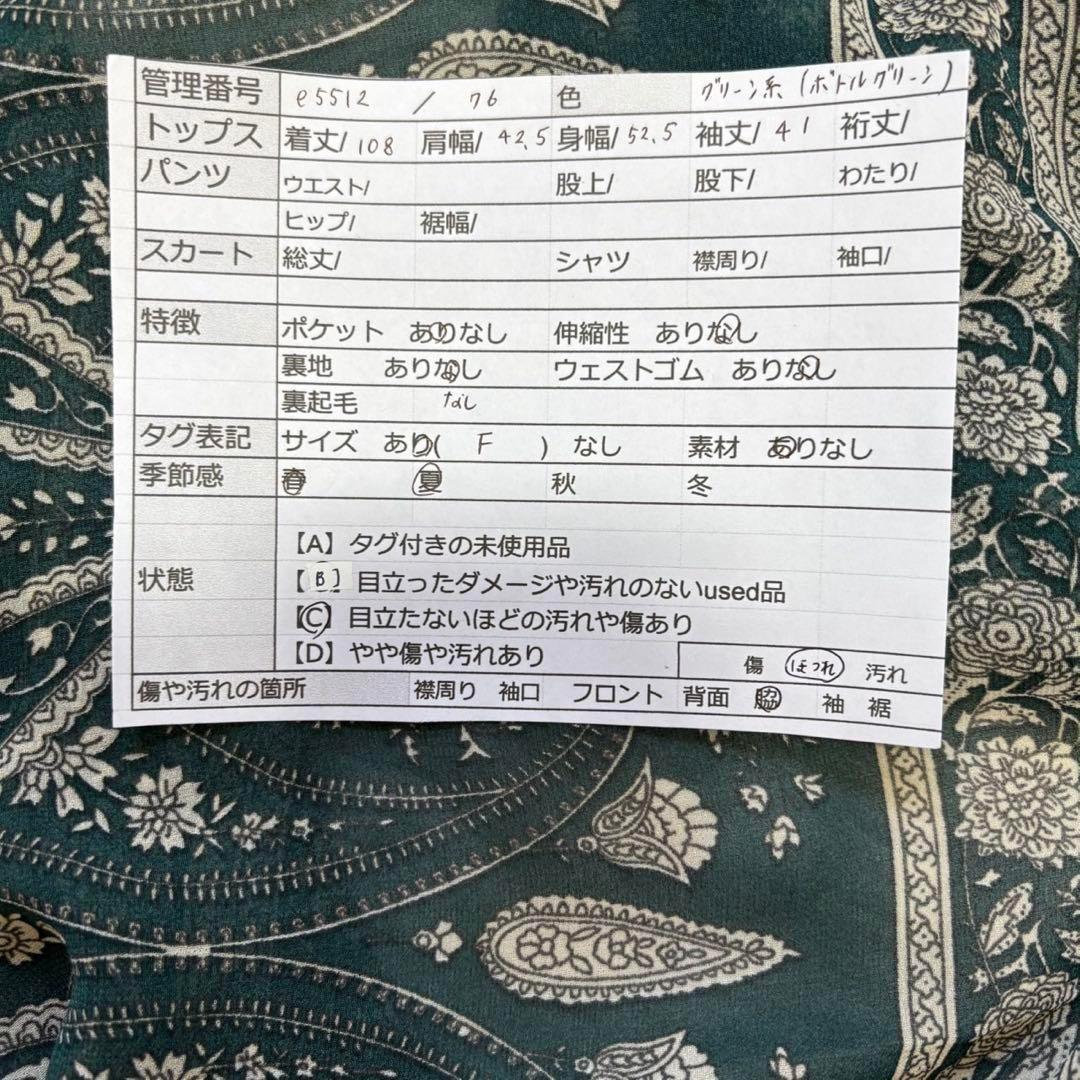 管理番号 e5512 / 76 色 グリーン系(ボトルグリーン)
トップス 着丈/108 肩幅/42.5 身幅/52.5 袖丈/41 裄丈/
パンツ ウエスト/ 股上/ 股下/ わたり/
ヒップ/ 裾幅/
スカート 総丈/ シャツ 襟周り/ 袖口/
特徴 ポケット ありなし 伸縮性 ありなし
裏地 ありなし ウェストゴム ありなし
裏起毛 なし
タグ表記 サイズ あり( F ) なし 素材 ありなし
季節感 春 夏 秋 冬
【A】タグ付きの未使用品
状態 【B】目立ったダメージや汚れのないused品
【C】目立たないほどの汚れや傷あり
【D】やや傷や汚れあり 傷 ほつれ 汚れ
傷や汚れの箇所 襟周り 袖口 フロント 背面 脇 袖 裾